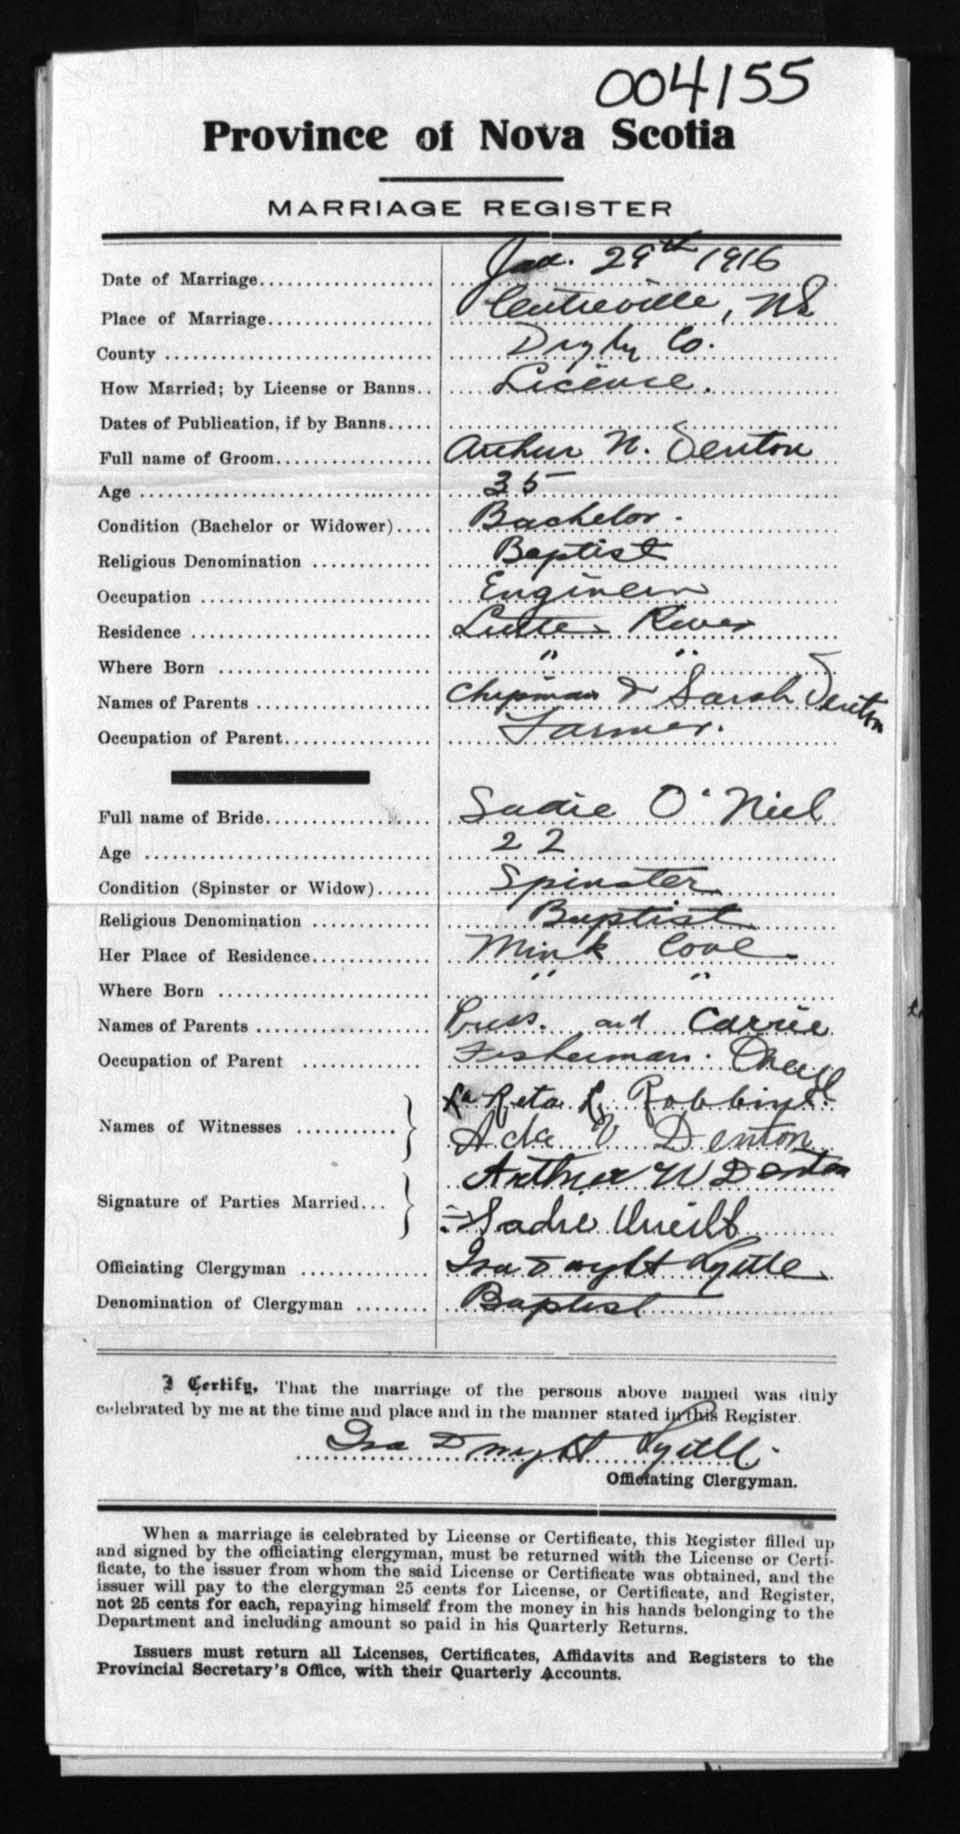 004155
Province of Nova Scotia
MARRIAGE REGISTER
Date of Marriage.................. Jan. 29th 1916
Place of Marriage................. Centreville, NS
County ........................... Digby Co.
How Married; by License or Banns.. License.
Dates of Publication, if by Banns.....
Full name of Groom................ Arthur N. Denton
Age .............................. 35
Condition (Bachelor or Widower).... Bachelor.
Religious Denomination ............ Baptist
Occupation ....................... Engineer
Residence ........................ Little River
Where Born ....................... " "
Names of Parents ................. Chipman & Sarah Denton
Occupation of Parent.............. Farmer.
Full name of Bride................ Sadie O'Niel
Age .............................. 22
Condition (Spinster or Widow)...... Spinster
Religious Denomination ............ Baptist
Her Place of Residence............ Mink Cove
Where Born ....................... " "
Names of Parents ................. and Carrie
Occupation of Parent ............. Fisherman.
Names of Witnesses ........... } La Reta L. Robbins
Ada V Denton
Signature of Parties Married... } Arthur W Denton
Sadie Oneill
Officiating Clergyman ............. Ira Dwight Lyttle
Denomination of Clergyman ........ Baptist
I Certify, That the marriage of the persons above named was duly
celebrated by me at the time and place and in the manner stated in this Register.
Ira Dwight Lyttle.
Officiating Clergyman.
When a marriage is celebrated by License or Certificate, this Register filled up
and signed by the officiating clergyman, must be returned with the License or Certi-
ficate, to the issuer from whom the said License or Certificate was obtained, and the
issuer will pay to the clergyman 25 cents for License, or Certificate, and Register,
not 25 cents for each, repaying himself from the money in his hands belonging to the
Department and including amount so paid in his Quarterly Returns.
Issuers must return all Licenses, Certificates, Affidavits and Registers to the
Provincial Secretary's Office, with their Quarterly Accounts.